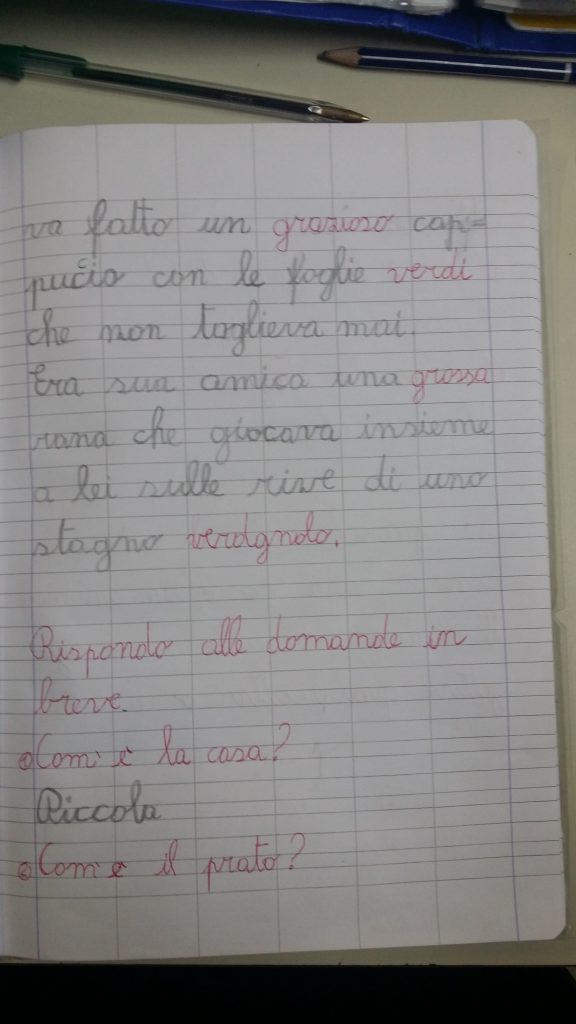 va fatto un grazioso cap=
puccio con le foglie verdi
che non toglieva mai.
Era sua amica una grossa
rana che giocava insieme
a lei sulle rive di uno
stagno verdgnolo.
Rispondo alle domande in
breve.
Com'è la casa?
Piccola
Com'è il prato?